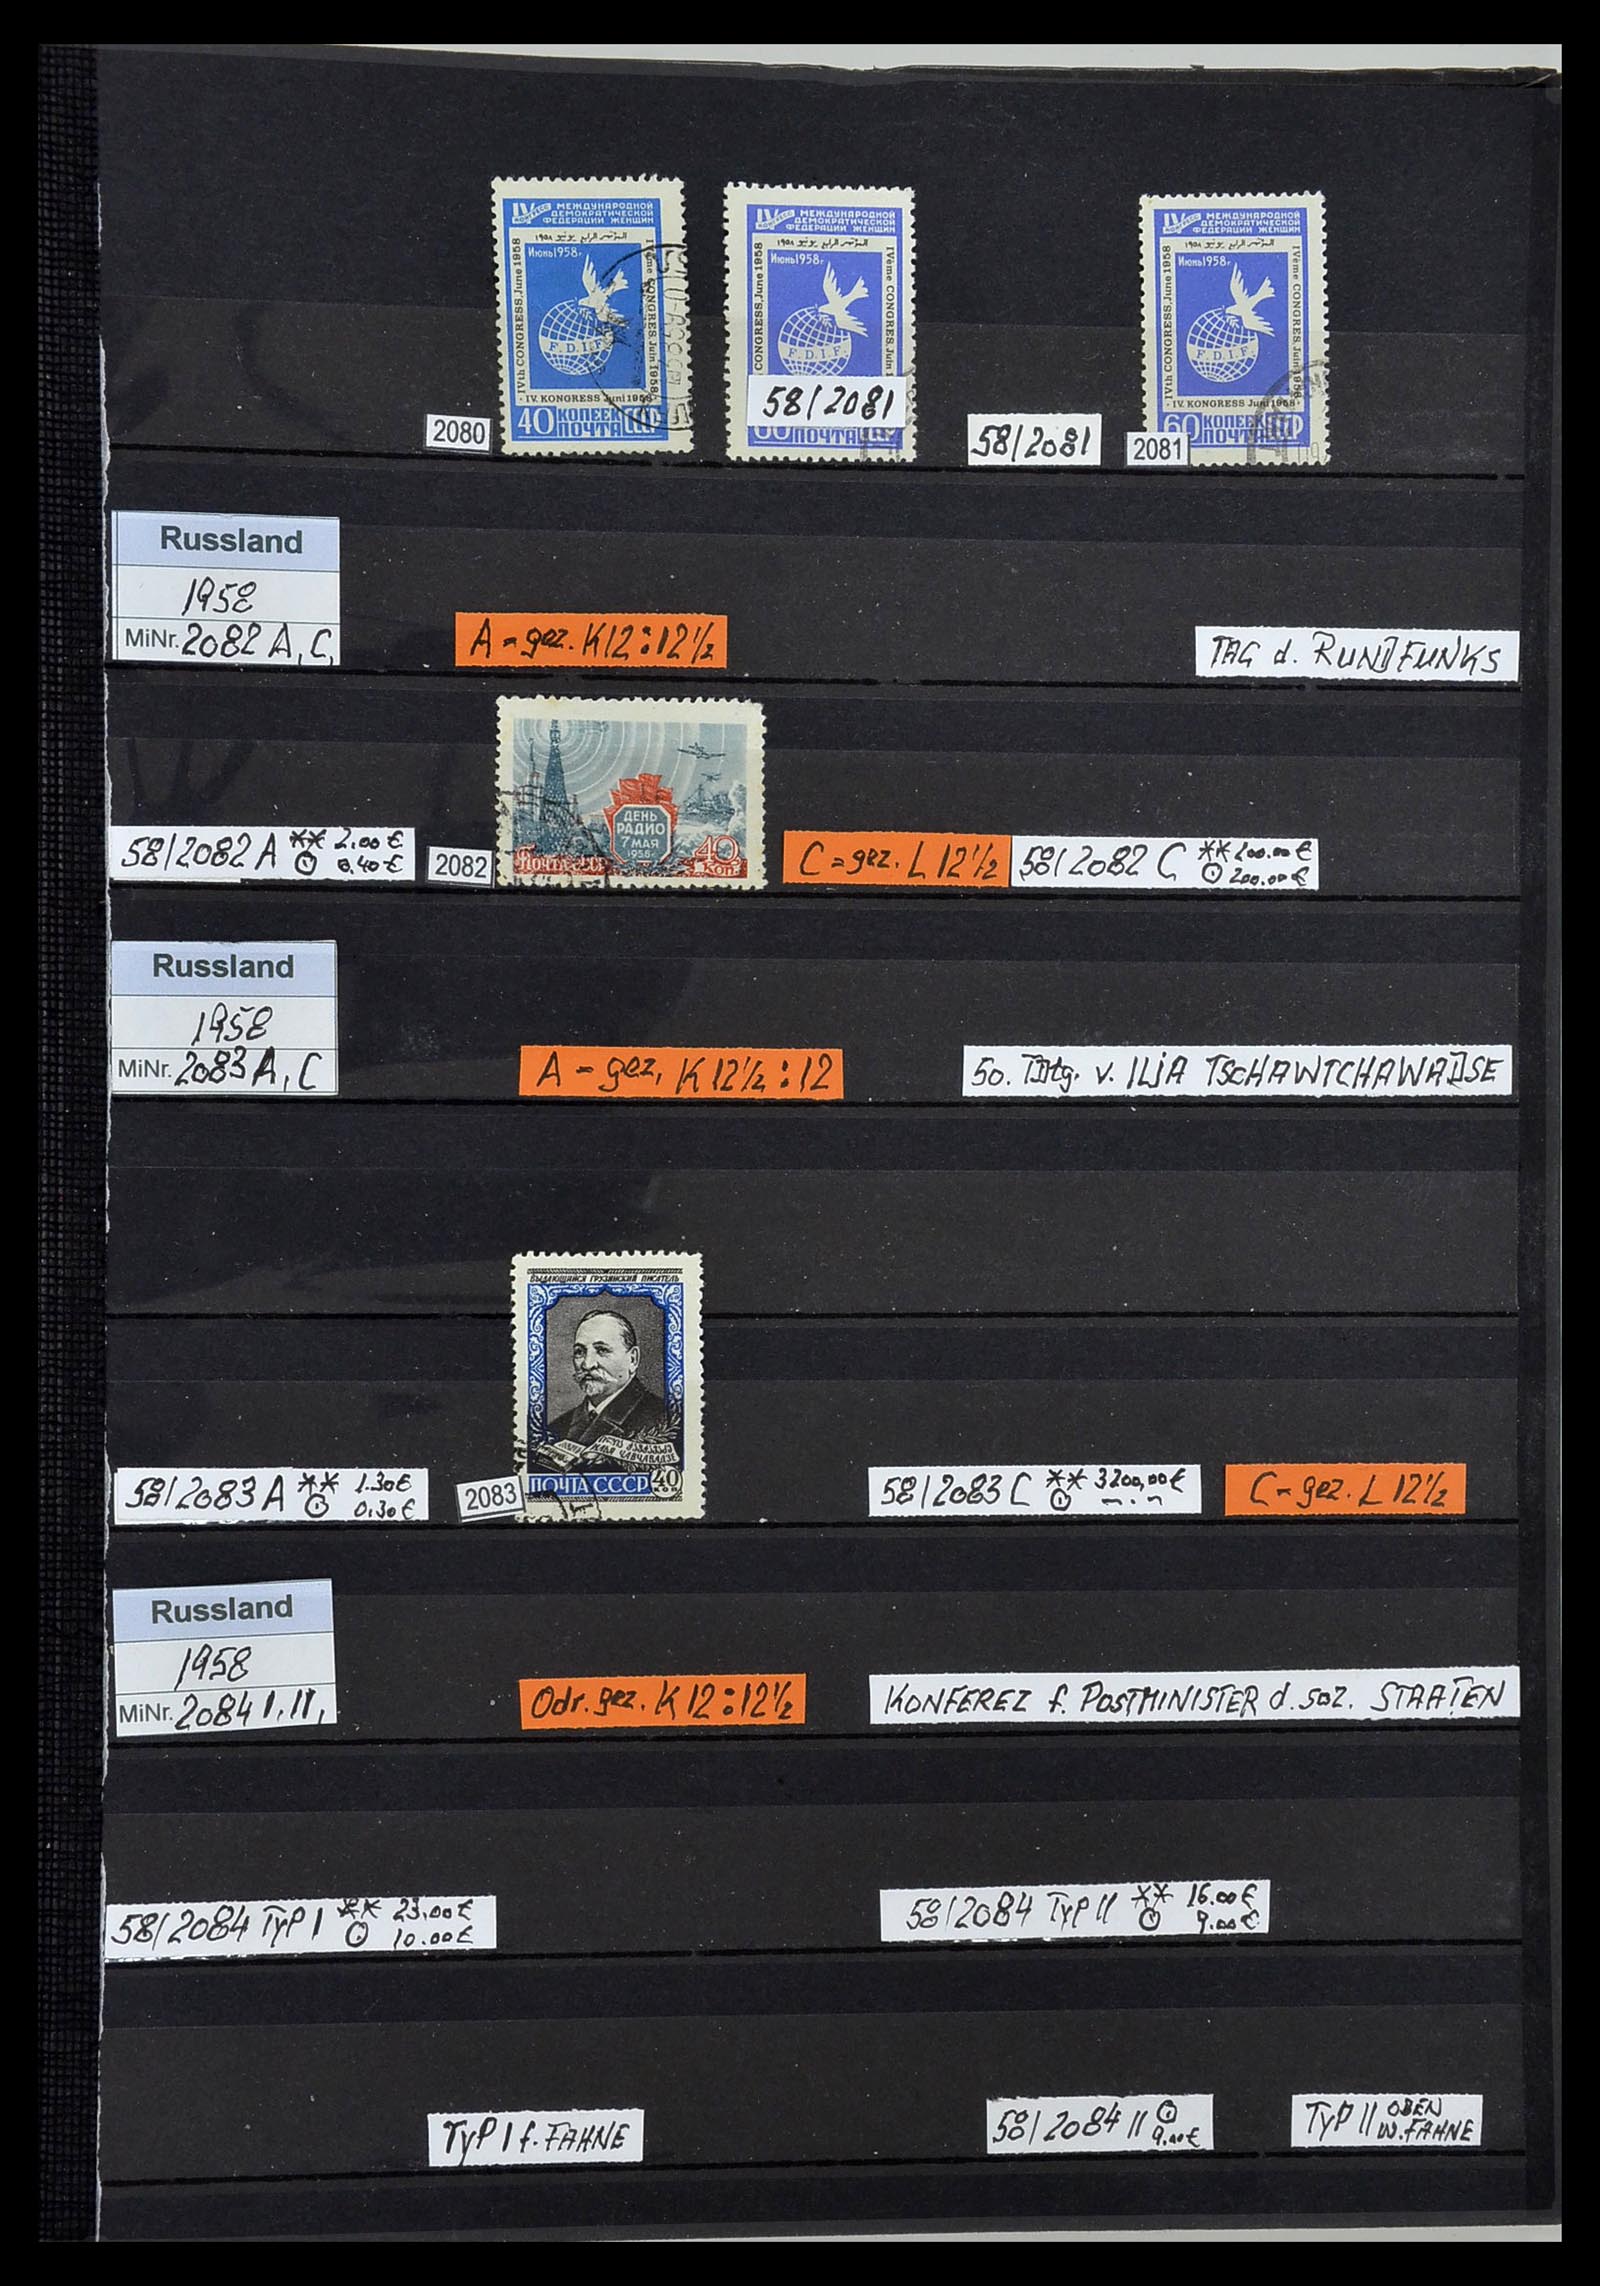 IV КОНГРЕСС МЕЖДУНАРОДНОЙ
ДЕМОКРАТИЧЕСКОЙ
ФЕДЕРАЦИИ ЖЕНЩИН
المؤتمر الرابع يونيو ١٩٥٨
Июнь 1958 г.
IVth CONGRESS, June 1958
IVème CONGRES, Juin 1958
F. D. I. F.
IV. KONGRESS Juni 1958
40 КОПЕЕК
ПОЧТА СССР
2080
IV КОНГРЕСС МЕЖДУНАРОДНОЙ
ДЕМОКРАТИЧЕСКОЙ
ФЕДЕРАЦИИ ЖЕНЩИН
المؤتمر الرابع يونيو ١٩٥٨
Июнь 1958 г.
CONGRESS, June 1958
IVème CONGRES, Juin
F. D. I. F.
58/2081
60 ПОЧТА
58/2081
2081
IV КОНГРЕСС МЕЖДУНАРОДНОЙ
ДЕМОКРАТИЧЕСКОЙ
ФЕДЕРАЦИИ ЖЕНЩИН
المؤتمر الرابع يونيو ١٩٥٨
Июнь 1958 г.
IVth CONGRESS, June 1958
IVème CONGRES, Juin 1958
F. D. I. F.
IV. KONGRESS Juni 1958
60 КОПЕЕК
ПОЧТА СССР
Russland
1958
MiNr. 2082 A, C,
A = gez. K 12 : 12 ½
TAG d. RUNDFUNKS
58/2082 A ** 2,00 €
⊙ 0,40 €
2082
ДЕНЬ
РАДИО
7 МАЯ
1958
ПОЧТА СССР 40 КОП.
C = gez. L 12 ½
58/2082 C ** 200.00 €
⊙ 200.00 €
Russland
1958
MiNr. 2083 A, C
A = gez. K 12 ½ : 12
50. TDtg. v. ILJA TSCHAWTCHAWADSE
ВЫДАЮЩИЙСЯ ГРУЗИНСКИЙ ПИСАТЕЛЬ
ИЛЬЯ ЧАВЧАВАДЗЕ
ПОЧТА СССР 40 КОП
58/2083 A ** 1.30 €
⊙ 0,30 €
2083
58/2083 C ** 3200,00 €
⊙ -.-
C = gez. L 12 ½
Russland
1958
MiNr. 2084 I, II,
Odr. gez. K 12 : 12 ½
KONFEREZ f. POSTMINISTER d. soz. STAATEN
58/2084 TYP I ** 23,00 €
⊙ 10.00 €
58/2084 TYP II ** 16.00 €
⊙ 9.00 €
TYP I f. FAHNE
58/2084 II ⊙
9,00 €
TYP II OBEN
w. FAHNE